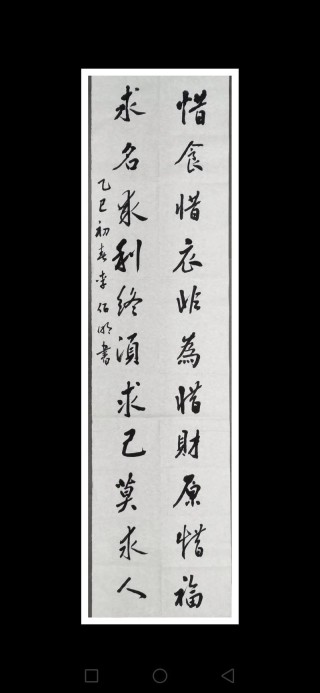 惜食惜衣非為惜財原惜福
求名求利終須求己莫求人
乙巳初春李書